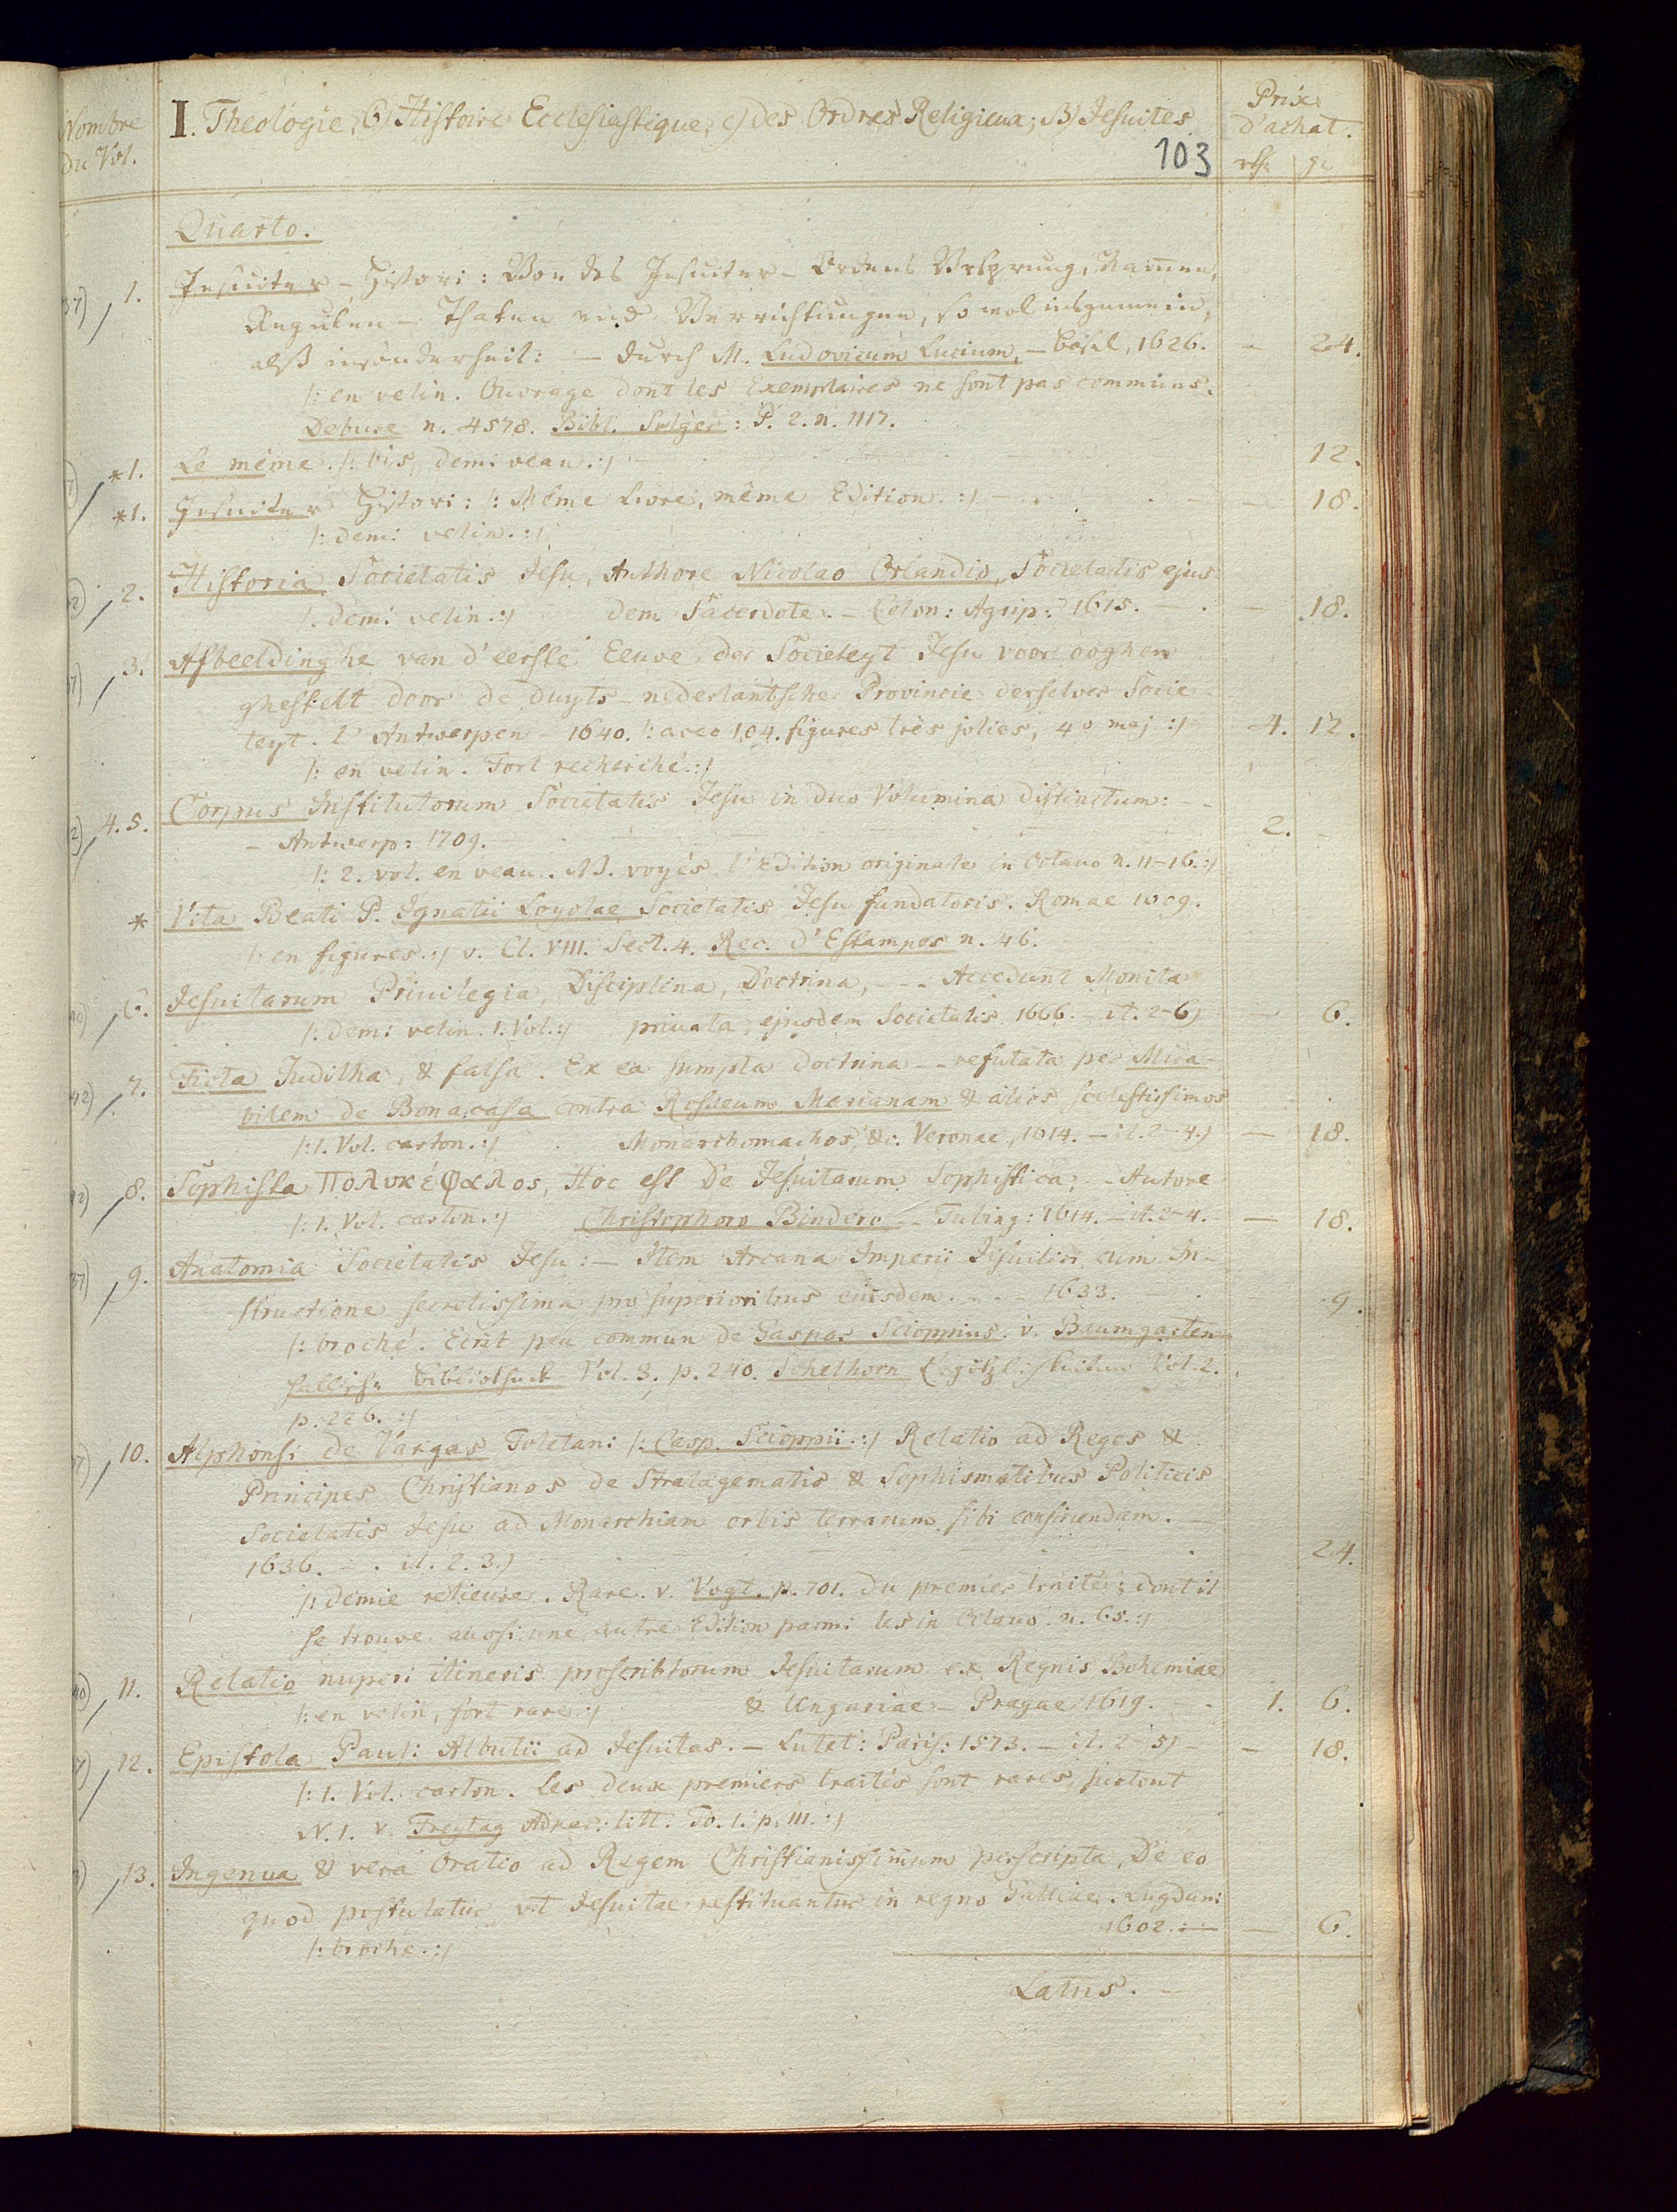 Nombre
du Vol.
I. Theologie, 6) Histoire Ecclesiastique, c) des Ordres Religieux; B) Jesuites
Prix
d'achat.
103
rth gr
Quarto.
1. Jesuiter - Histori: Von des Jesuiter - Ordens Ursprung, Namen,
Regulen - Thaten und Verrichtungen, so wol insgemein,
alß insonderheit: — durch M. Ludovicum Lucium, — Basel, 1626. — 24.
/: en velin. Ouvrage dont les Exemplaires ne sont pas communs.
Debure n. 4578. Bibl. Solger: P. 2. n. 1117.
*1. Le même. /: bis, demi veau. :/ — 12.
*1. Jesuiter Histori: /: Même Livre, même Edition. :/ — 18.
/: demi velin. :/
2. Historia Societatis Jesu, Authore Nicolao Orlandio, Societatis ejus-
/: demi velin. :/ dem Sacerdote. — Colon: Agrip: 1615. — 18.
3. Afbeeldinghe van d'eerste Eeuwe der Societeyt Jesu voor ooghen
ghestelt door de duyts-nederlantsche Provincie derselver Socie-
teyt. t'Antwerpen - 1640. /: avec 104. figures très jolies, 4o maj :/ 4. 12.
/: en velin. Fort recherché. :/
4. 5. Corpus Institutorum Societatis Jesu in duo Volumina distinctum: - -
- Antwerp: 1709. — 2. -
/: 2. vol. en veau. NB. voyés l'Edition originale in Octavo n. 11-16. :/
* Vita Beati P. Ignatii Loyolae Societatis Jesu fundatoris. Romae 1609.
/: en figures. :/ v. Cl. VIII. Sect. 4. Rec. d'Estampes n. 46.
6. Jesuitarum Privilegia, Disciplina, Doctrina, - - - Accedunt Monita
/: demi velin. 1. Vol. :/ privata, ejusdem Societatis 1666. — it. 2-6) — 6.
7. Ficta Juditha, & falsa. Ex ea sumpta doctrina - - refutata per Mira-
bilem de Bonacasa contra Rosseum Marianam & alios scelestissimos
/: 1. Vol. carton. :/ Monarchomachos, &c. Veronae, 1614. — it. 2-4.) — 18.
8. Sophista Πολυκέφαλος, Hoc est De Jesuitarum Sophistica, - - Autore
/: 1. Vol. carton. :/ Christophoro Bindero - - Tubing: 1614. — it. 2-4. — 18.
9. Anatomia Societatis Jesu: — Item Arcana Imperii Jesuitici cum In-
structione secretissima pro superioribus eiusdem. - - - 1633. — 9.
/: broché. Ecrit peu commun de Gaspar Scioppius. v. Baumgarten
hallische Bibliothek Vol. 3. p. 240. Schelhorn Ergötzlichkeiten Vol. 2.
p. 226. :/
10. Alphonsi de Vargas Toletani /: Casp. Scioppii. :/ Relatio ad Reges &
Principes Christianos de Stratagematis & Sophismatibus Politicis
Societatis Jesu ad Monarchiam orbis terrarum sibi conficiendam. —
1636. — it. 2. 3.) — 24.
/: demie relieure. Rare. v. Vogt. p. 701. du premier traité; dont il
se trouve aussi une autre Edition parmi les in Octavo n. 65. :/
11. Relatio nuperi itineris proscriptorum Jesuitarum ex Regnis Bohemiae
/: en velin, fort rare. :/ & Ungariae — Pragae 1619. — 1. 6.
12. Epistola Pauli Albutii ad Jesuitas. — Lutet: Paris: 1573. — it. 2-5) — 18.
/: 1. Vol. carton. Les deux premiers traités sont rares, surtout
N. 1. v. Freytag Adpar. litt. To. 1. p. 111. :/
13. Ingenua & vera Oratio ad Regem Christianissimum perscripta, De eo
quod postulatur, ut Jesuitae restituantur in regno Galliae. Lugduni
1602. — 6.
/: broché. :/
Latus. —